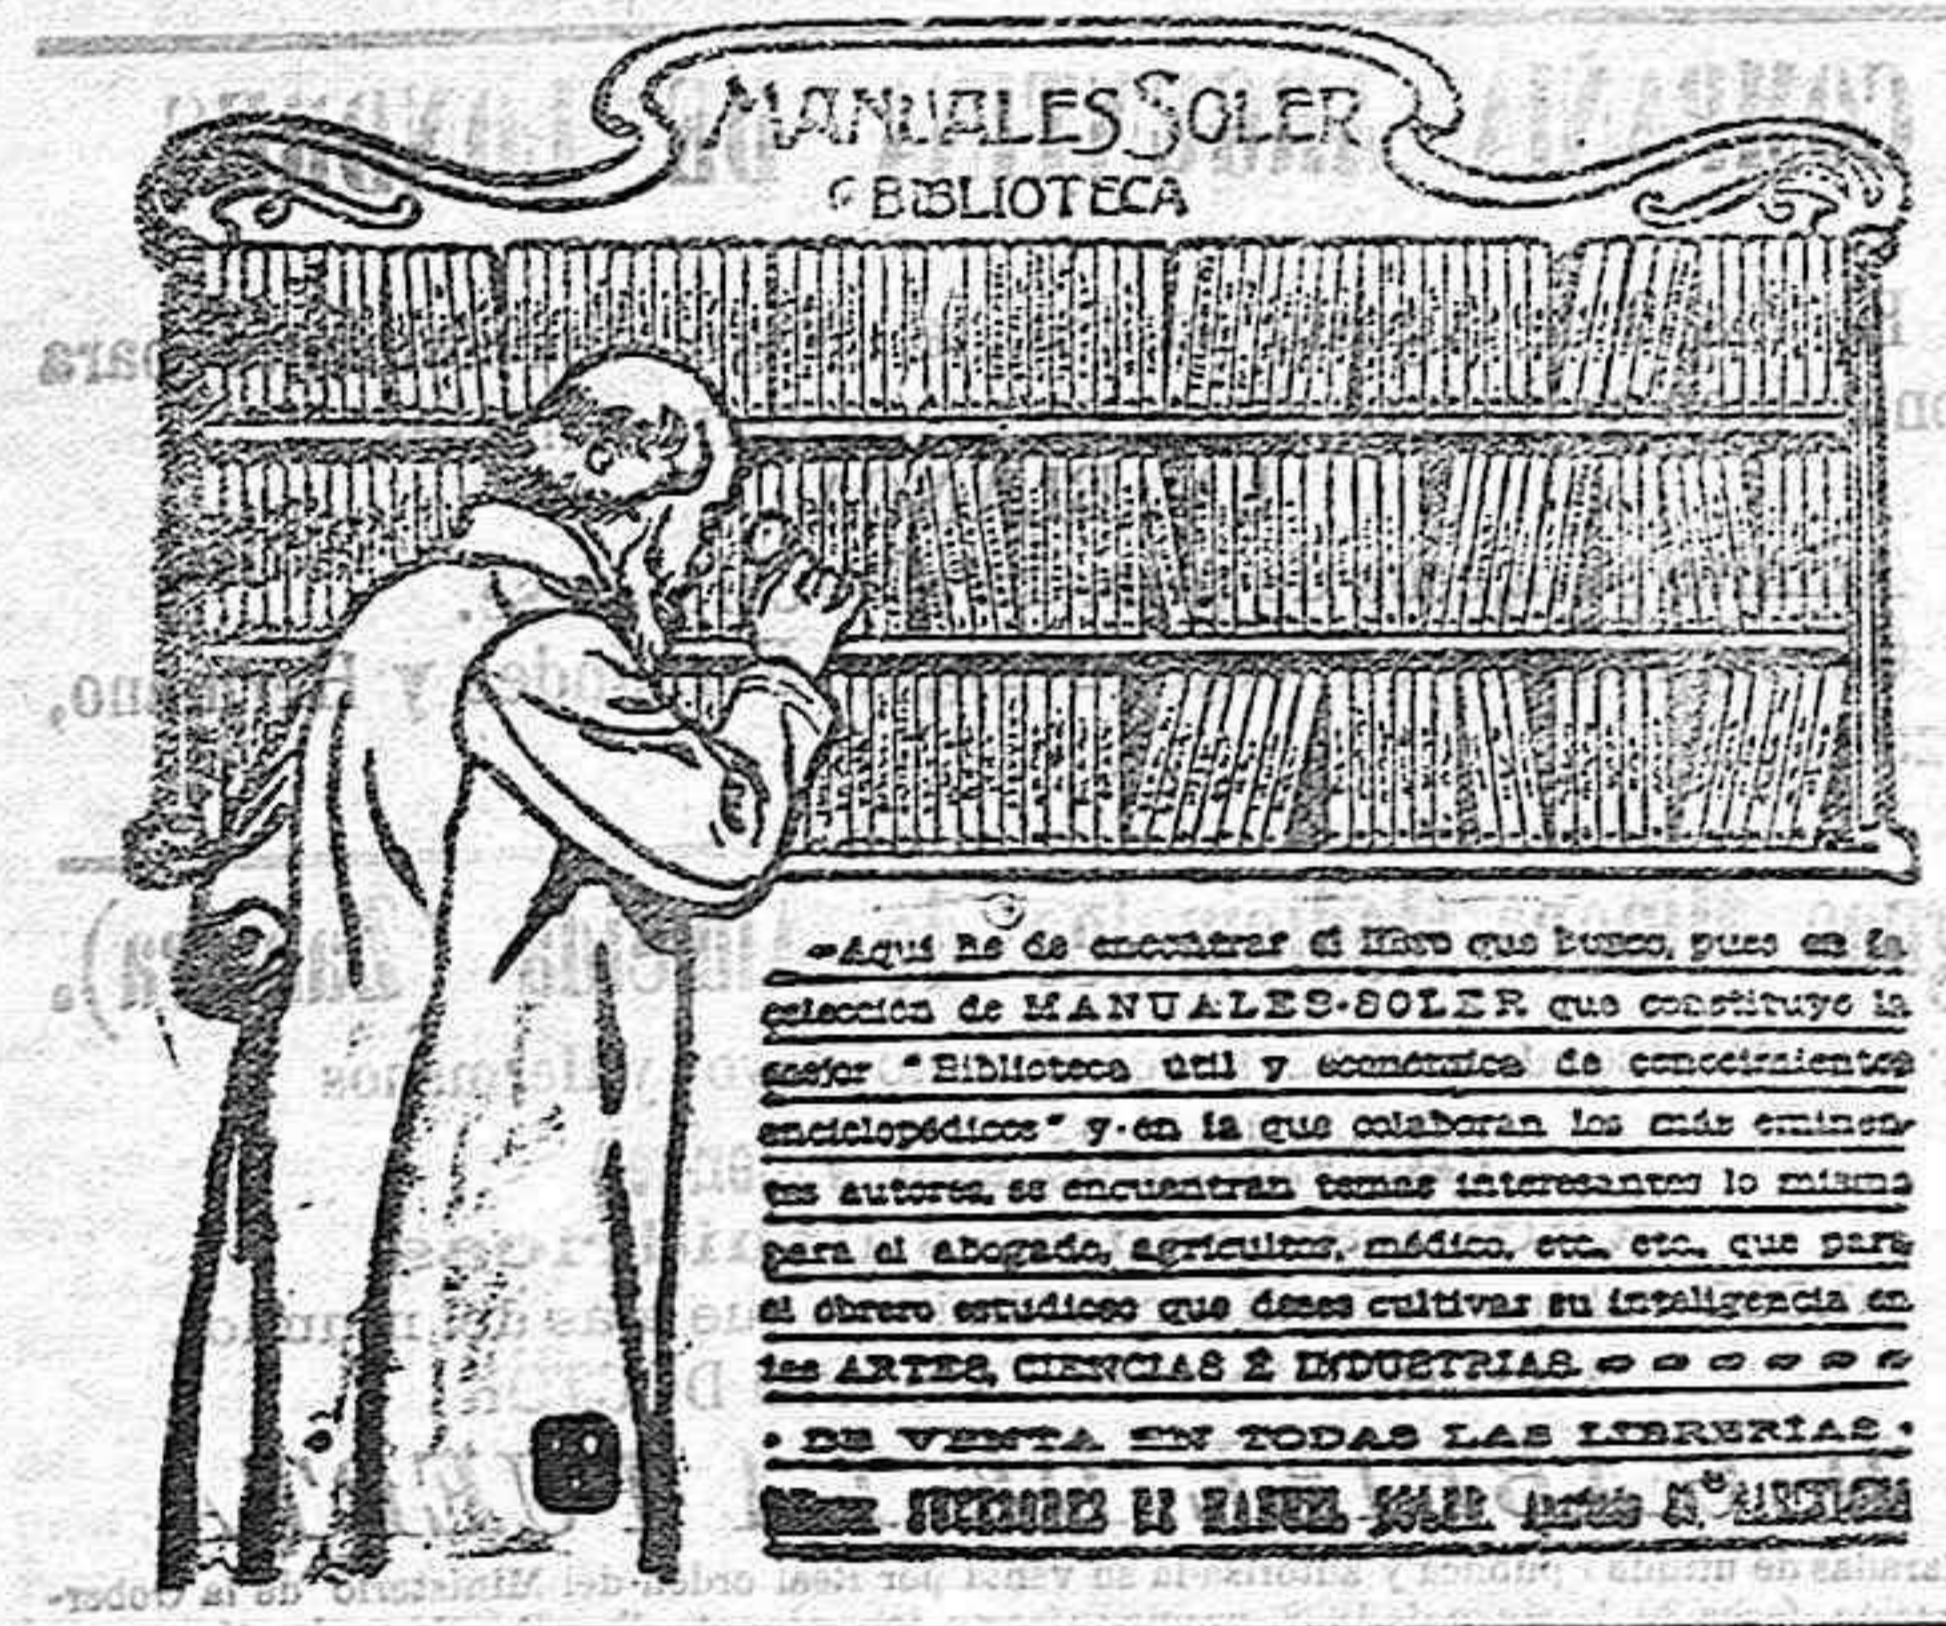 MANUALES SOLER
BIBLIOTECA
-Aquí he de encontrar el libro que busco, pues en la
colección de MANUALES-SOLER que constituye la
mejor "Biblioteca útil y económica de conocimientos
enciclopédicos" y en la que colaboran los más eminen-
tes autores, se encuentran temas interesantes lo mismo
para el abogado, agricultor, médico, etc. etc. que para
el obrero estudioso que desee cultivar su inteligencia en
las ARTES, CIENCIAS É INDUSTRIAS
• DE VENTA EN TODAS LAS LIBRERÍAS •
SUCESORES DE MANUEL SOLER BARCELONA